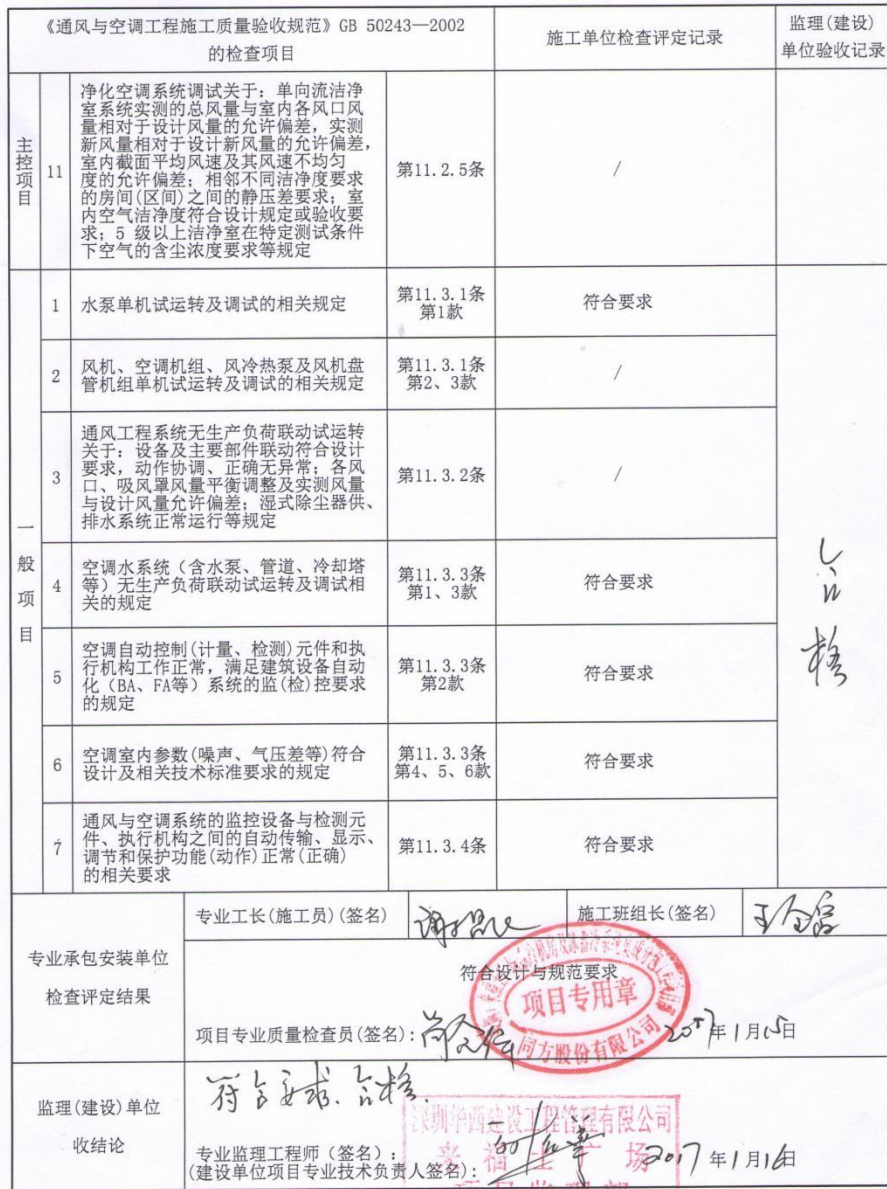 《通风与空调工程施工质量验收规范》GB 50243—2002
的检查项目
施工单位检查评定记录
监理(建设)
单位验收记录
主控项目
11
净化空调系统调试关于：单向流洁净
室系统实测的总风量与室内各风口风
量相对于设计风量的允许偏差，实测
新风量相对于设计新风量的允许偏差，
室内截面平均风速及其风速不均匀
度的允许偏差；相邻不同洁净度要求
的房间(区间)之间的静压差要求；室
内空气洁净度符合设计规定或验收要
求；5 级以上洁净室在特定测试条件
下空气的含尘浓度要求等规定
第11.2.5条
/
一般项目
1
水泵单机试运转及调试的相关规定
第11.3.1条
第1款
符合要求
2
风机、空调机组、风冷热泵及风机盘
管机组单机试运转及调试的相关规定
第11.3.1条
第2、3款
/
3
通风工程系统无生产负荷联动试运转
关于：设备及主要部件联动符合设计
要求，动作协调、正确无异常；各风
口、吸风罩风量平衡调整及实测风量
与设计风量允许偏差；湿式除尘器供、
排水系统正常运行等规定
第11.3.2条
/
4
空调水系统（含水泵、管道、冷却塔
等）无生产负荷联动试运转及调试相
关的规定
第11.3.3条
第1、3款
符合要求
5
空调自动控制(计量、检测)元件和执
行机构工作正常，满足建筑设备自动
化（BA、FA等）系统的监(检)控要求
的规定
第11.3.3条
第2款
符合要求
6
空调室内参数(噪声、气压差等)符合
设计及相关技术标准要求的规定
第11.3.3条
第4、5、6款
符合要求
7
通风与空调系统的监控设备与检测元
件、执行机构之间的自动传输、显示、
调节和保护功能(动作)正常(正确)
的相关要求
第11.3.4条
符合要求
合格
专业承包安装单位
检查评定结果
专业工长(施工员)(签名)
施工班组长(签名)
符合设计与规范要求
项目专用章
同方股份有限公司
项目专业质量检查员(签名):
2017年1月15日
监理(建设)单位
收结论
符合要求、合格.
深圳华西建设工程管理有限公司
来福士广场
专业监理工程师（签名）:
(建设单位项目专业技术负责人签名):
2017年1月16日